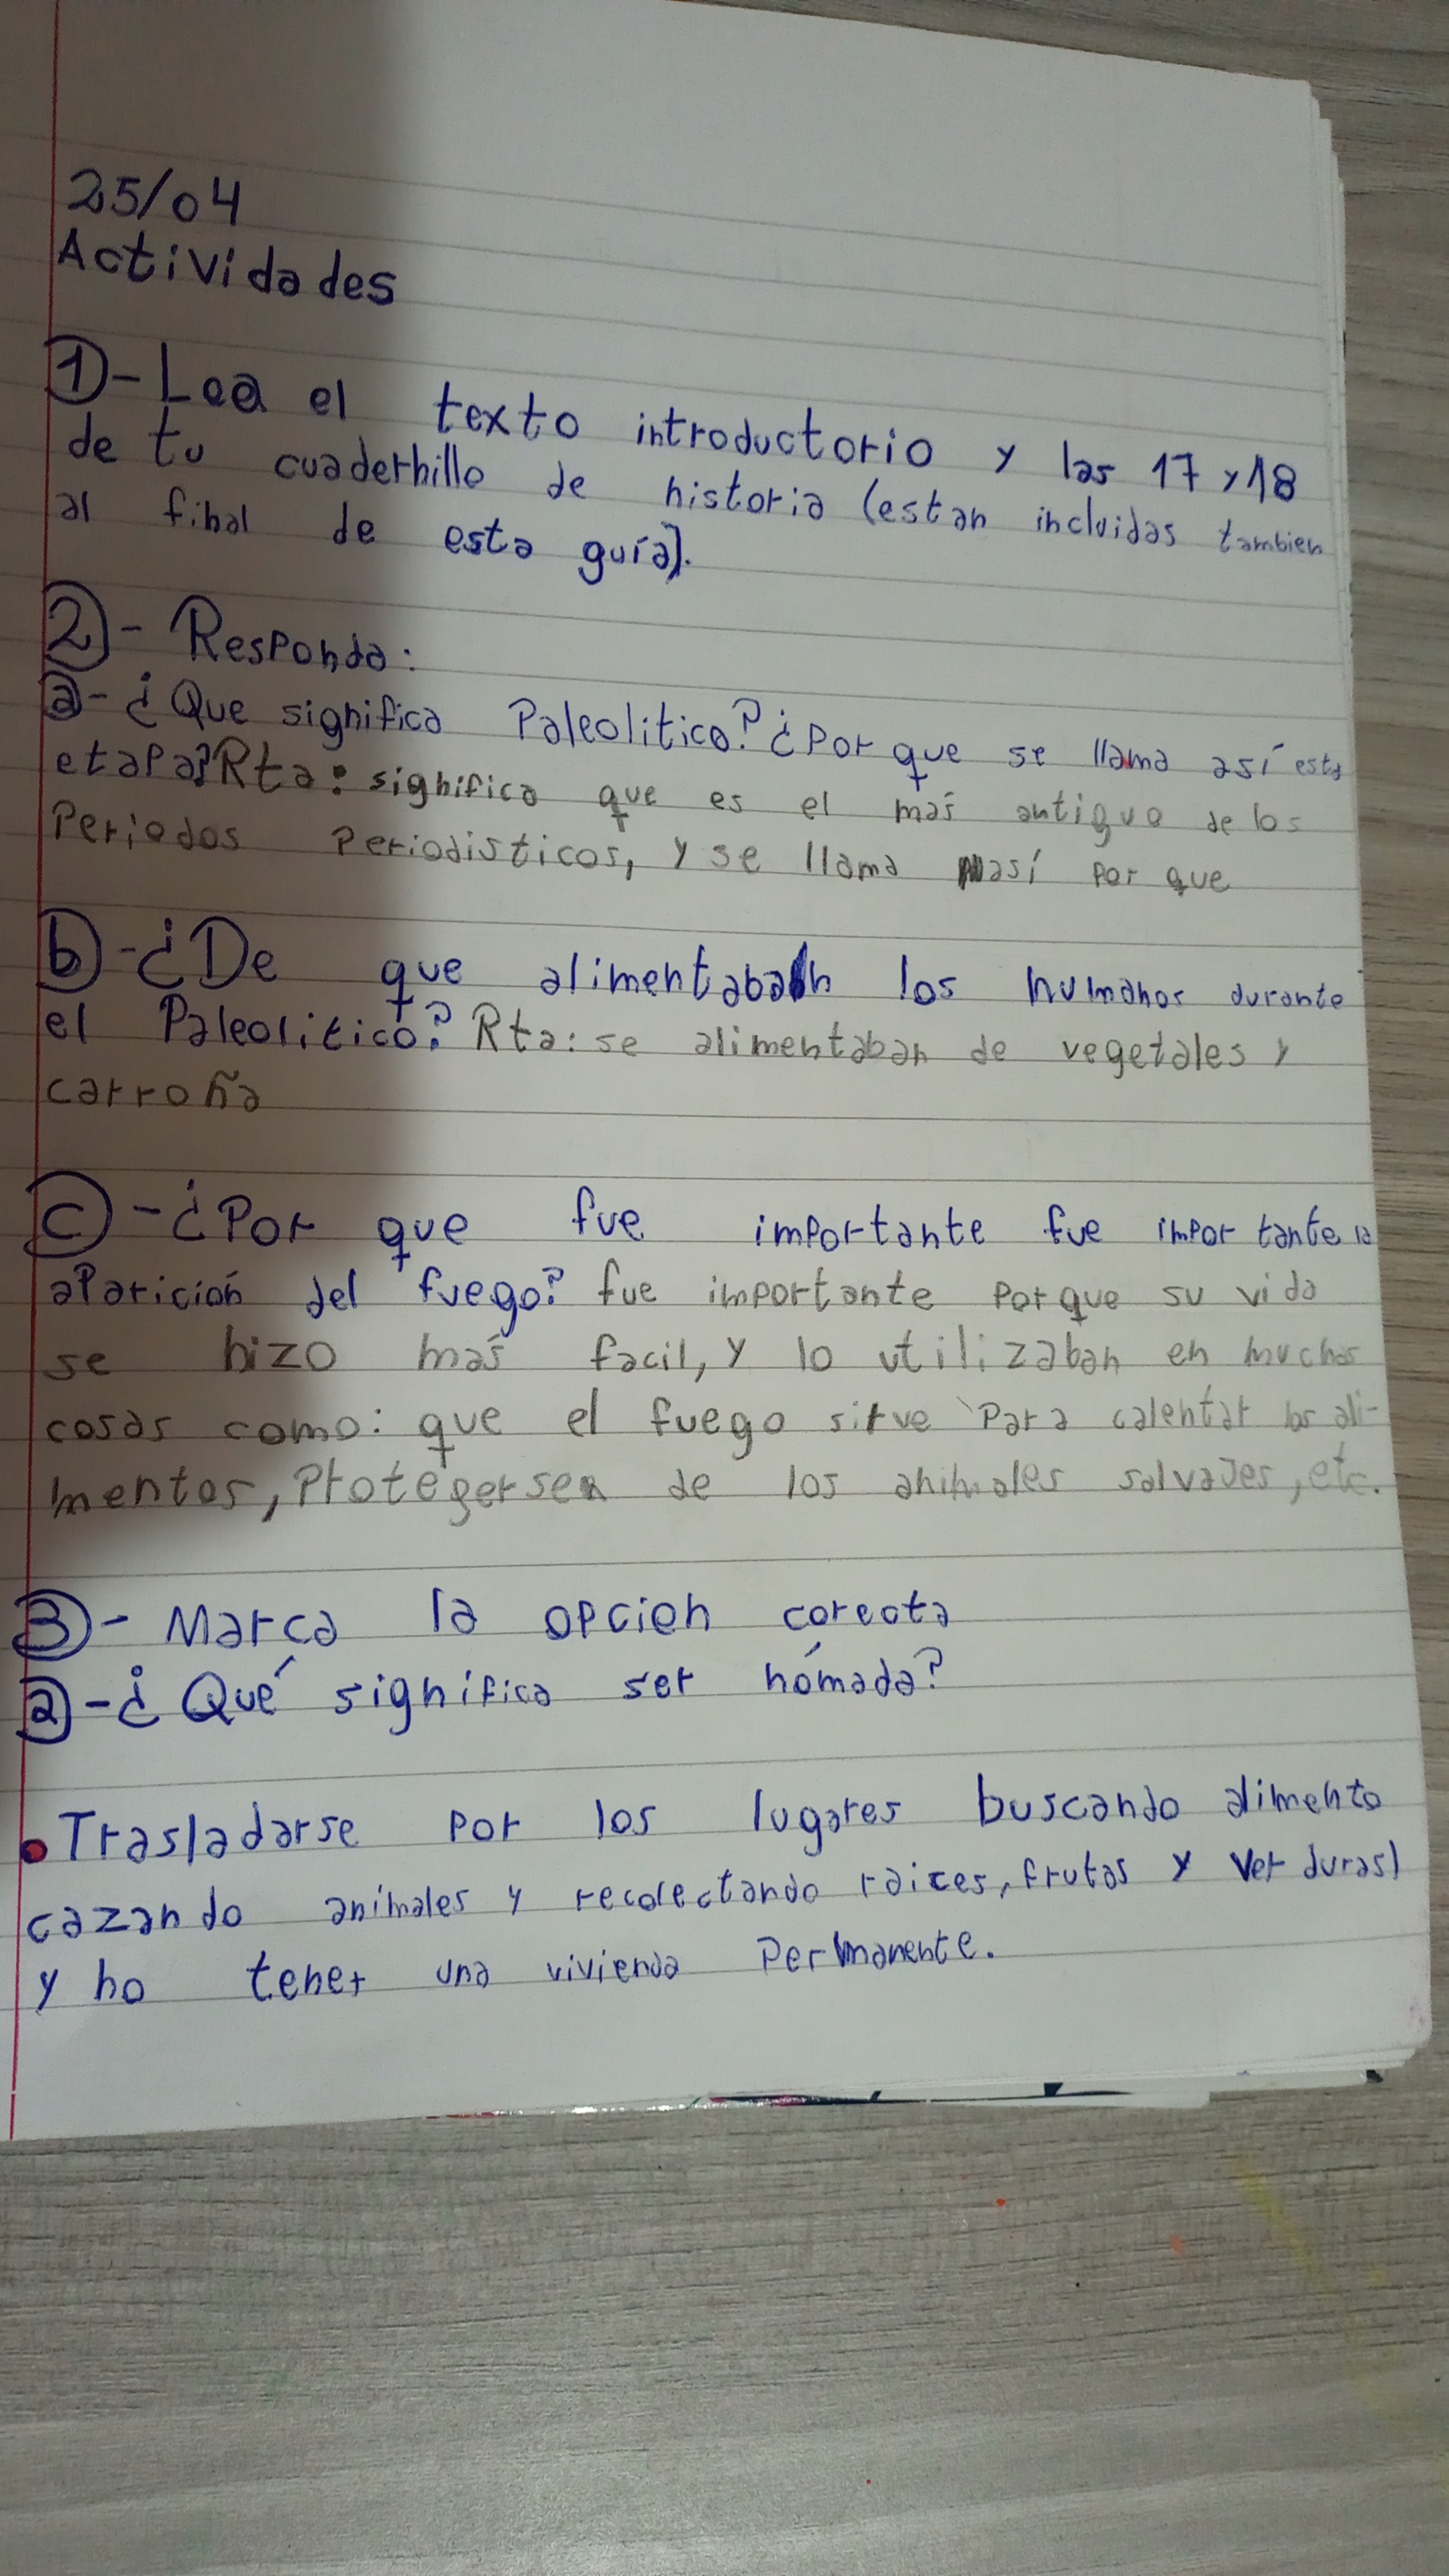 25/04
Actividades
1)- Lea el texto introductorio y las 17 y 18
de tu cuadernillo de historia (estan incluidas tambien
al final de esta guía).
2)- Responda:
a- ¿Que significa Paleolitico? ¿Por que se llama así esta
etapa? Rta: significa que es el más antiguo de los
Periodos Periodisticos, y se llama así por que
b)- ¿De que alimentaban los humanos durante
el Paleolitico? Rta: se alimentaban de vegetales y
carroña
c)- ¿Por que fue importante fue importante la
aparición del fuego? fue importante porque su vida
se hizo más facil, y lo utilizaban en muchas
cosas como: que el fuego sirve para calentar los ali-
mentos, Protegersen de los animales salvajes, etc.
3)- Marca la opcien corecta
a)- ¿Qué significa ser nómada?
• Trasladarse por los lugares buscando alimento
cazando animales y recolectando raices, frutas y verduras)
y no tener una vivienda permanente.